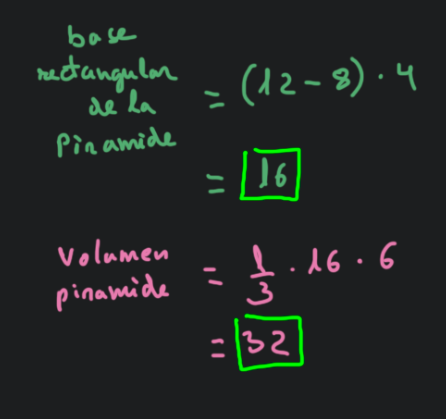 base
rectangular
de la
Piramide
= (12 - 8) · 4
= 16
Volumen
piramide
= 1/3 · 16 · 6
= 32